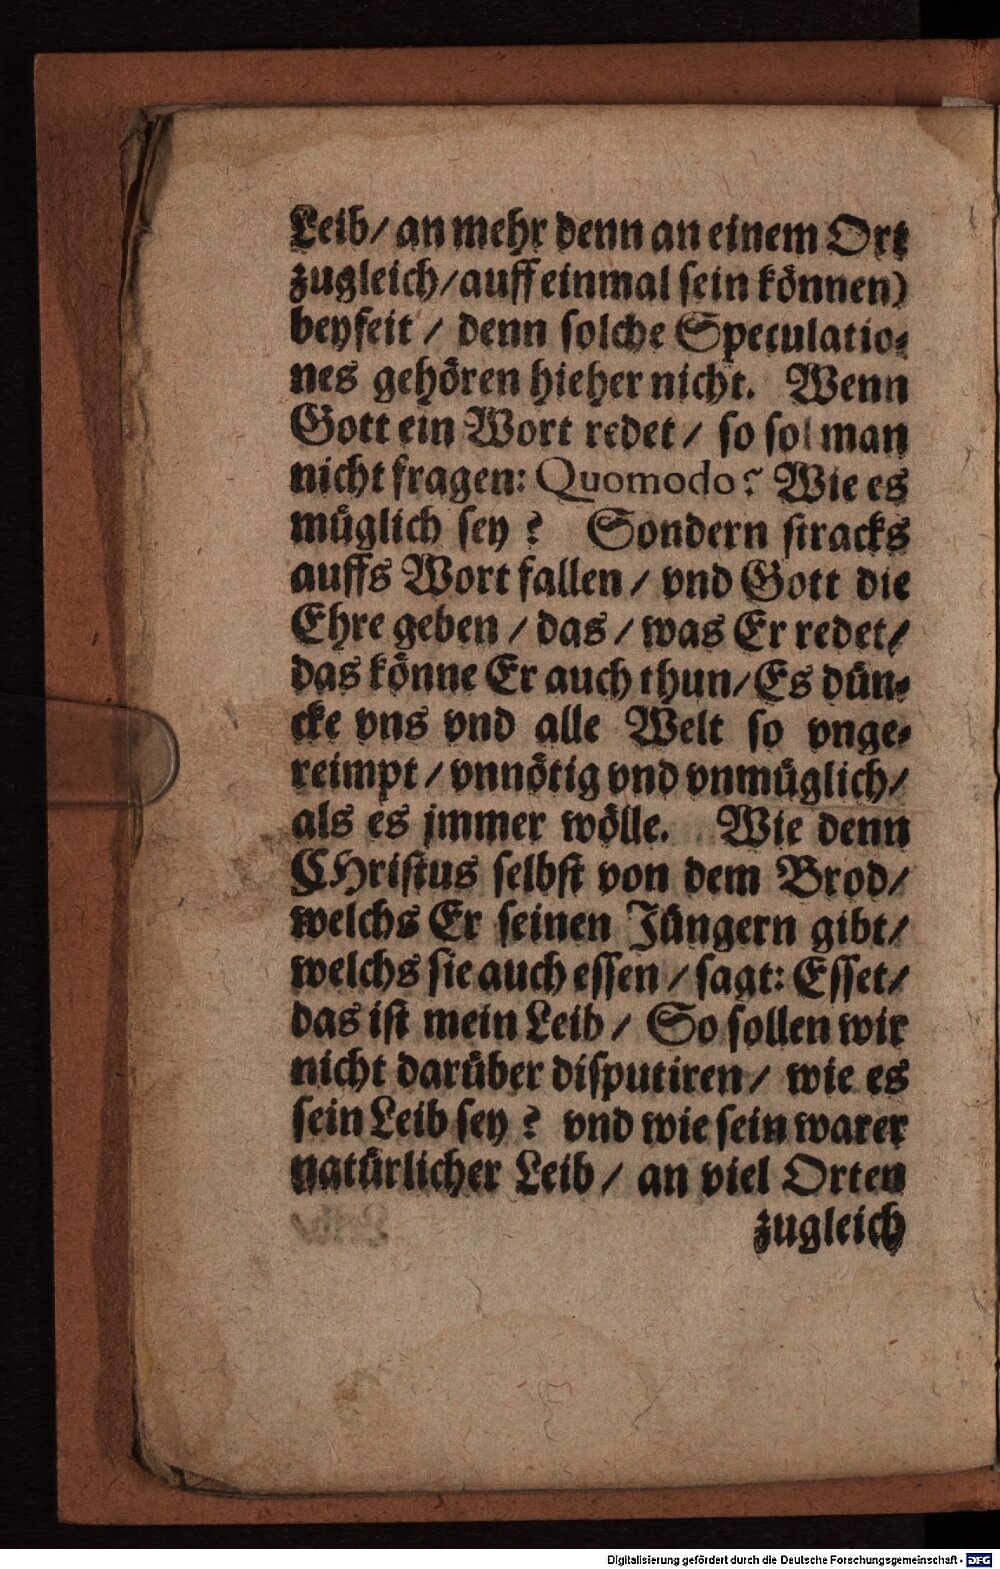 Leib/ an mehr denn an einem Ort
zugleich/ auff einmal sein können)
beyseit / denn solche Speculatio-
nes gehören hieher nicht. Wenn
Gott ein Wort redet / so sol man
nicht fragen: Quomodo? Wie es
müglich sey ? Sondern stracks
auffs Wort fallen / vnd Gott die
Ehre geben / das / was Er redet/
das könne Er auch thun/ Es dün-
cke vns vnd alle Welt so vnge-
reimpt / vnnötig vnd vnmüglich/
als es jmmer wölle. Wie denn
CHristus selbst von dem Brod/
welchs Er seinen Jüngern gibt/
welchs sie auch essen / sagt: Esset/
das ist mein Leib / So sollen wir
nicht darüber disputiren / wie es
sein Leib sey ? vnd wie sein warer
natürlicher Leib / an viel Orten
zugleich
Digitalisierung gefördert durch die Deutsche Forschungsgemeinschaft - DFG